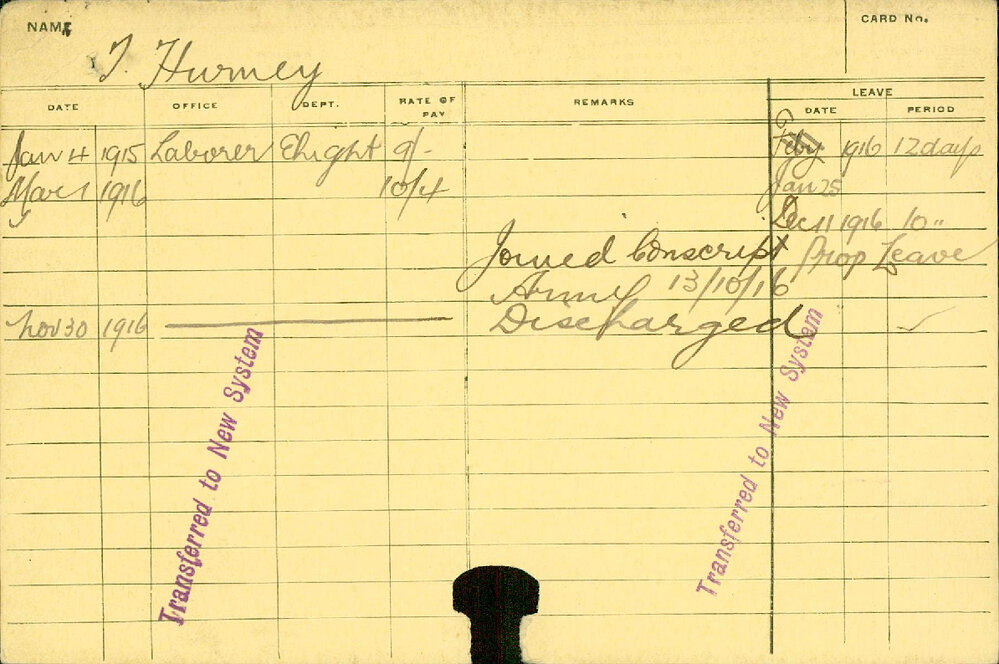 NAME
CARD No.
T. Hurney
DATE OFFICE DEPT. RATE OF PAY REMARKS LEAVE
DATE PERIOD
Jan 4 1915 Laborer Elught 9/- Feby 1916 12 days
Mar 1 1916 10/4 Jan 25
Dec 11 1916 10 "
Joined Conscript Prop Leave
Army 13/10/16
Nov 30 1916 Discharged
Transferred to New System
Transferred to New System